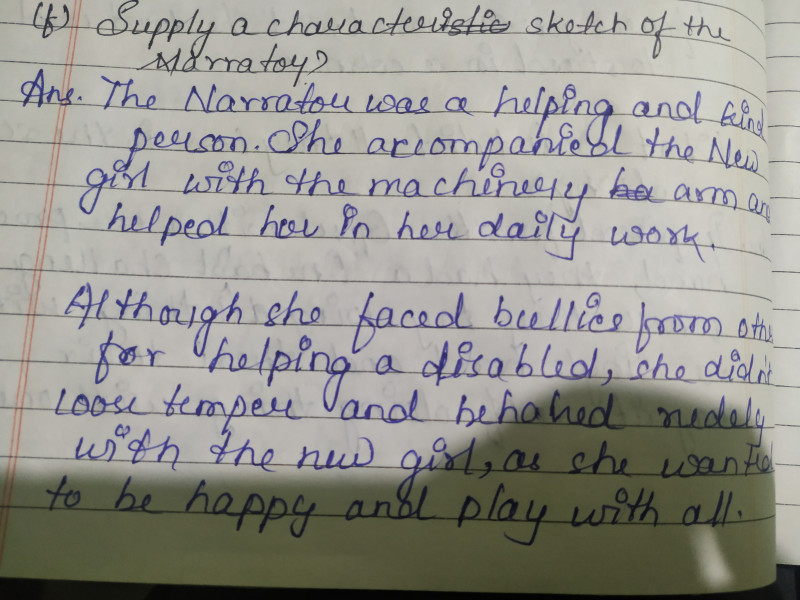 (f) Supply a characteristic sketch of the
Narrator?
Ans. The Narrator was a helping and kind
person. She accompanied the New
girl with the machinery ha arm an
helped her in her daily work.
Although she faced bullies from othe
for helping a disabled, she didn't
loose temper and behaved
with the new girl, as she wanted
to be happy and play with all.